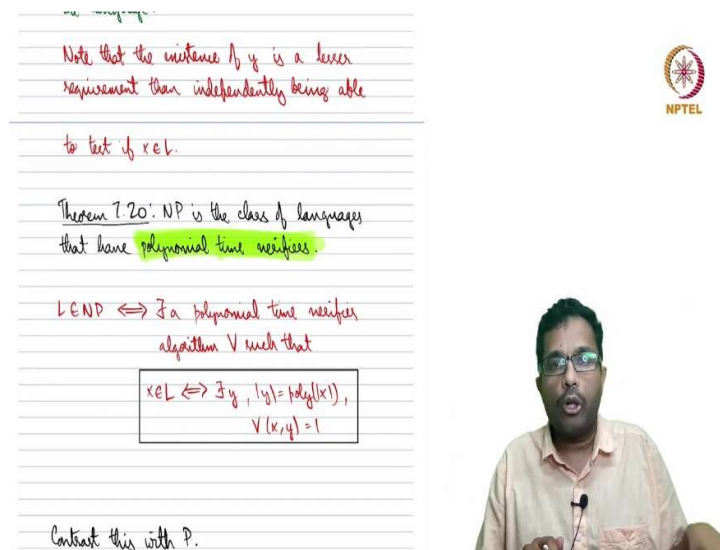 the language.
Note that the existence of y is a lesser
requirement than independently being able
to test if x ∈ L.
Theorem 7.20: NP is the class of languages
that have polynomial time verifiers.
L ∈ NP ⟺ ∃ a polynomial time verifier
algorithm V such that
x ∈ L ⟺ ∃ y, |y| = poly(|x|),
V(x, y) = 1
Contrast this with P.
NPTEL